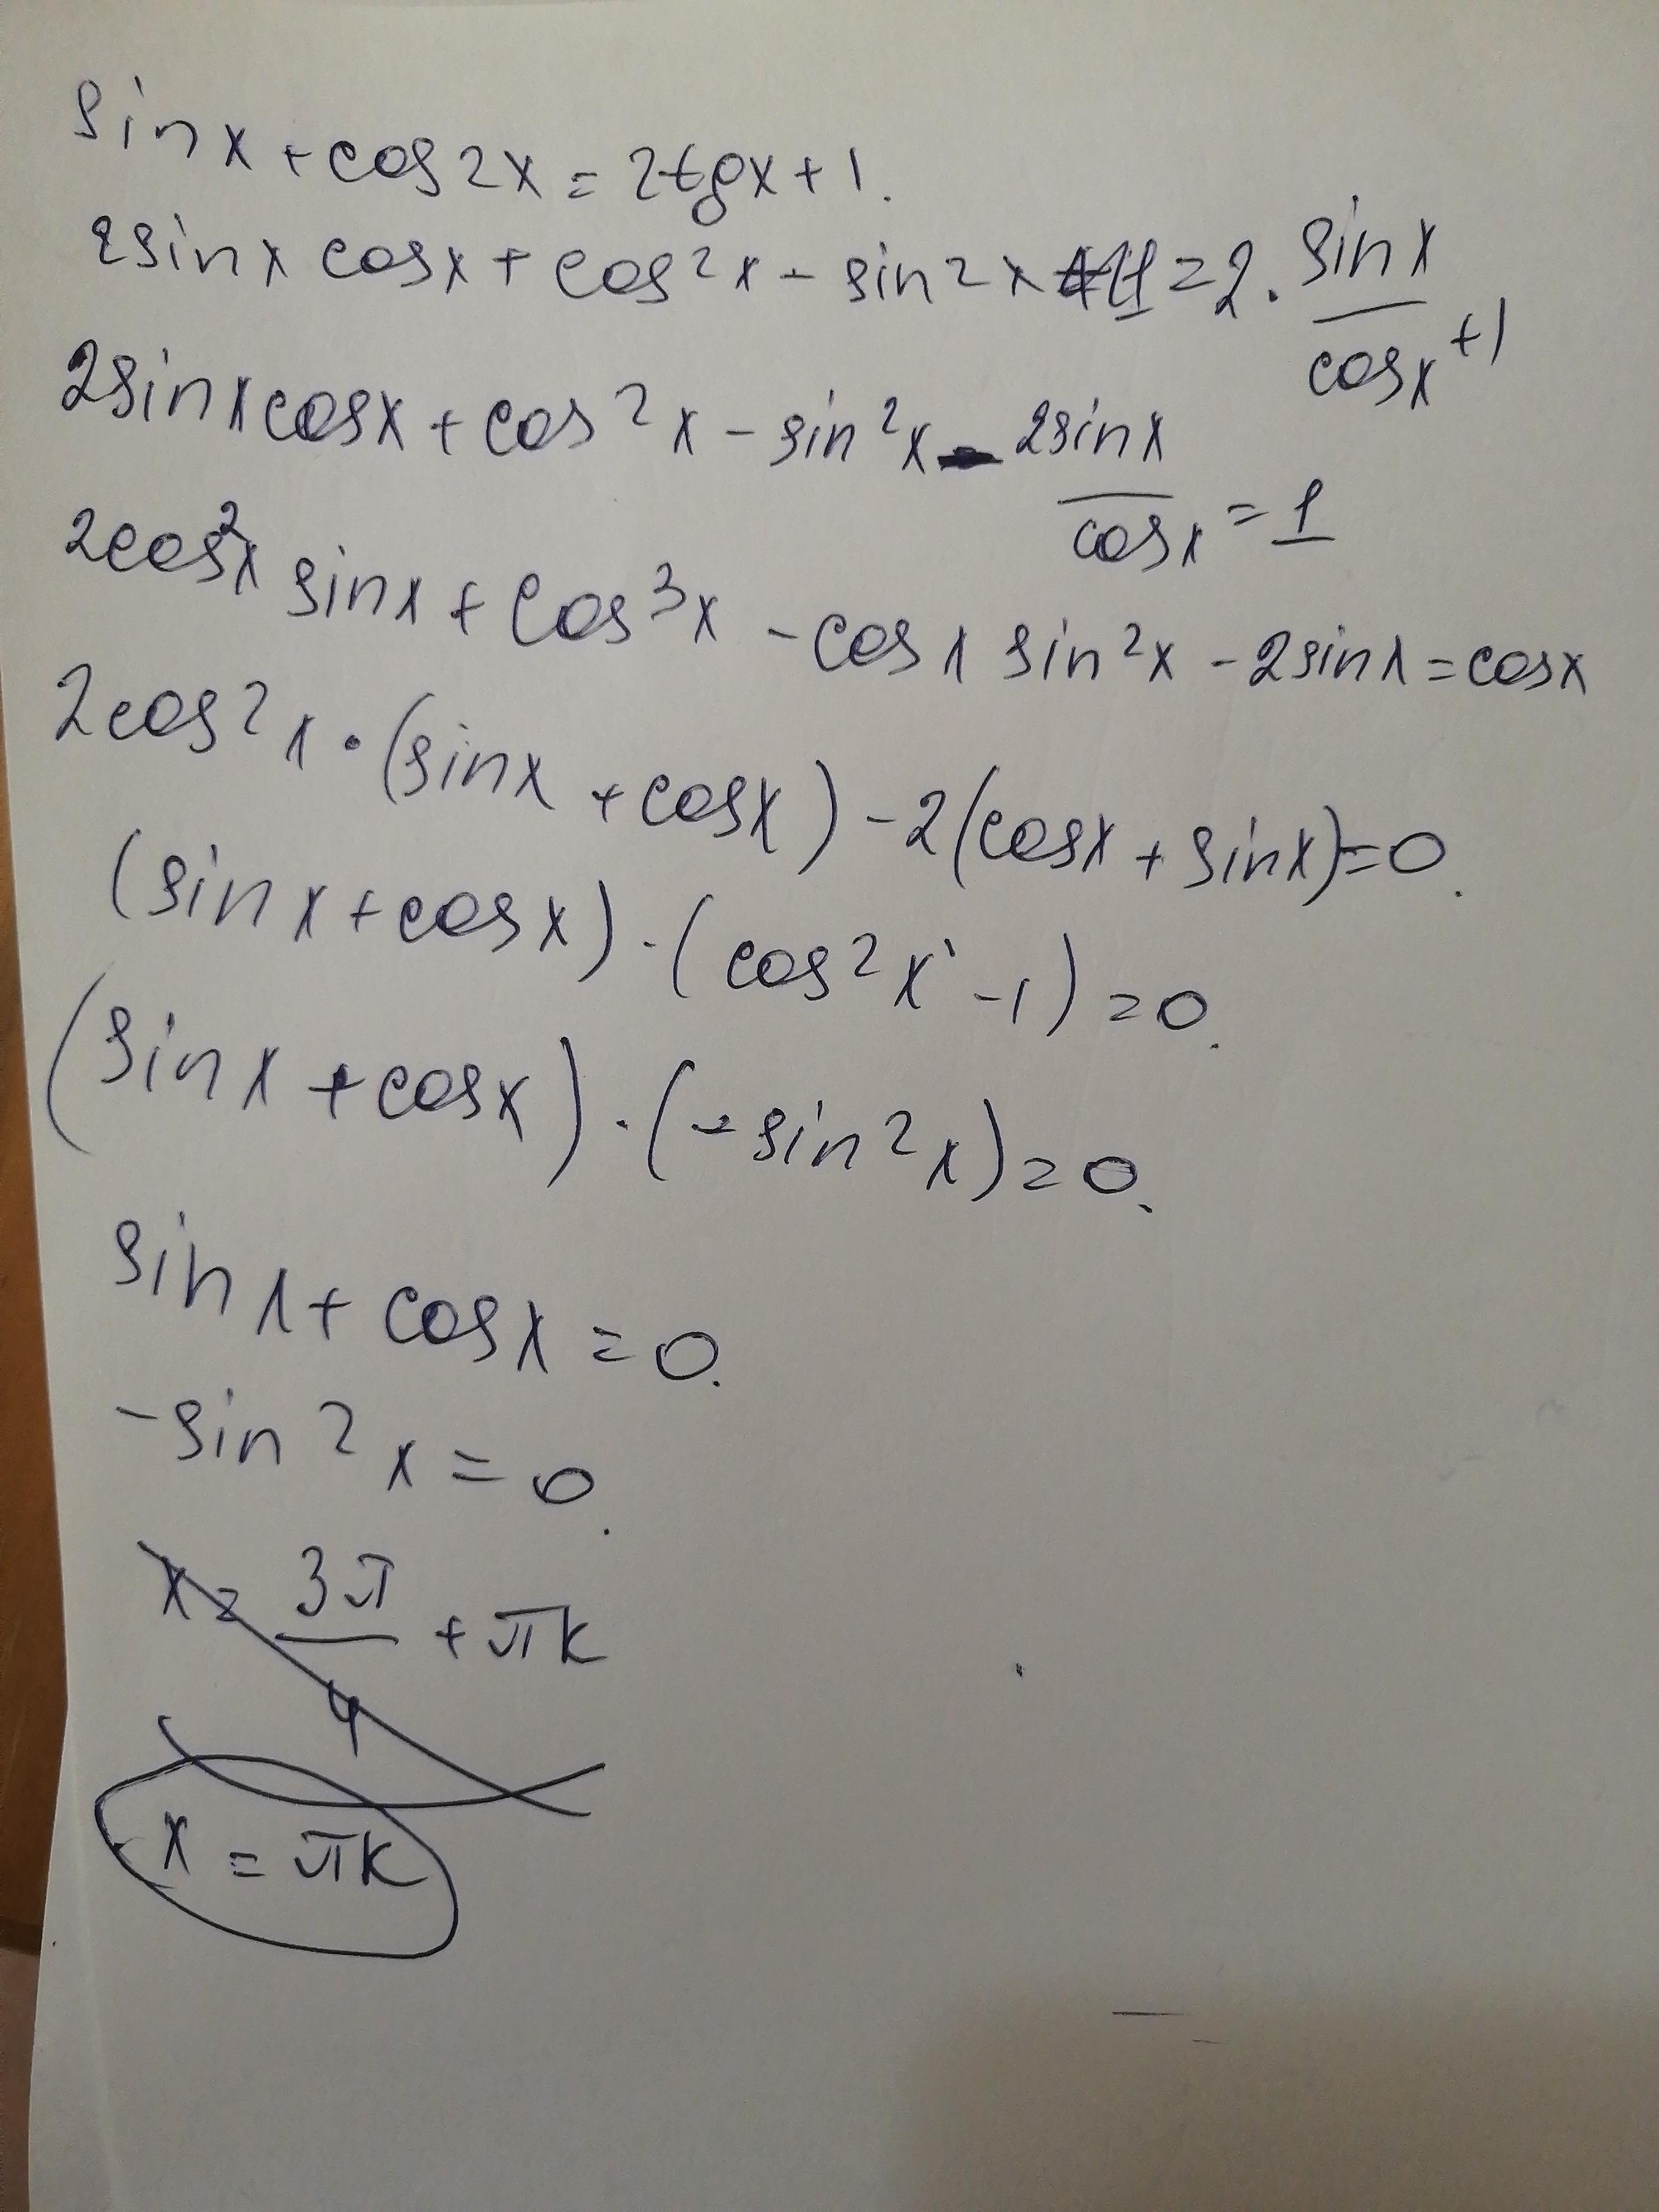 sinx + cos2x = 2tgx + 1.
2sinx cosx + cos²x - sin²x = 2 · sinx/cosx + 1
2sinxcosx + cos²x - sin²x - 2sinx/cosx = 1
2cos²x sinx + cos³x - cosx sin²x - 2sinx = cosx
2cos²x · (sinx + cosx) - 2(cosx + sinx) = 0.
(sinx + cosx) · (cos²x - 1) = 0.
(sinx + cosx) · (-sin²x) = 0.
sinx + cosx = 0.
-sin²x = 0.
x = 3π/4 + πk
x = πk